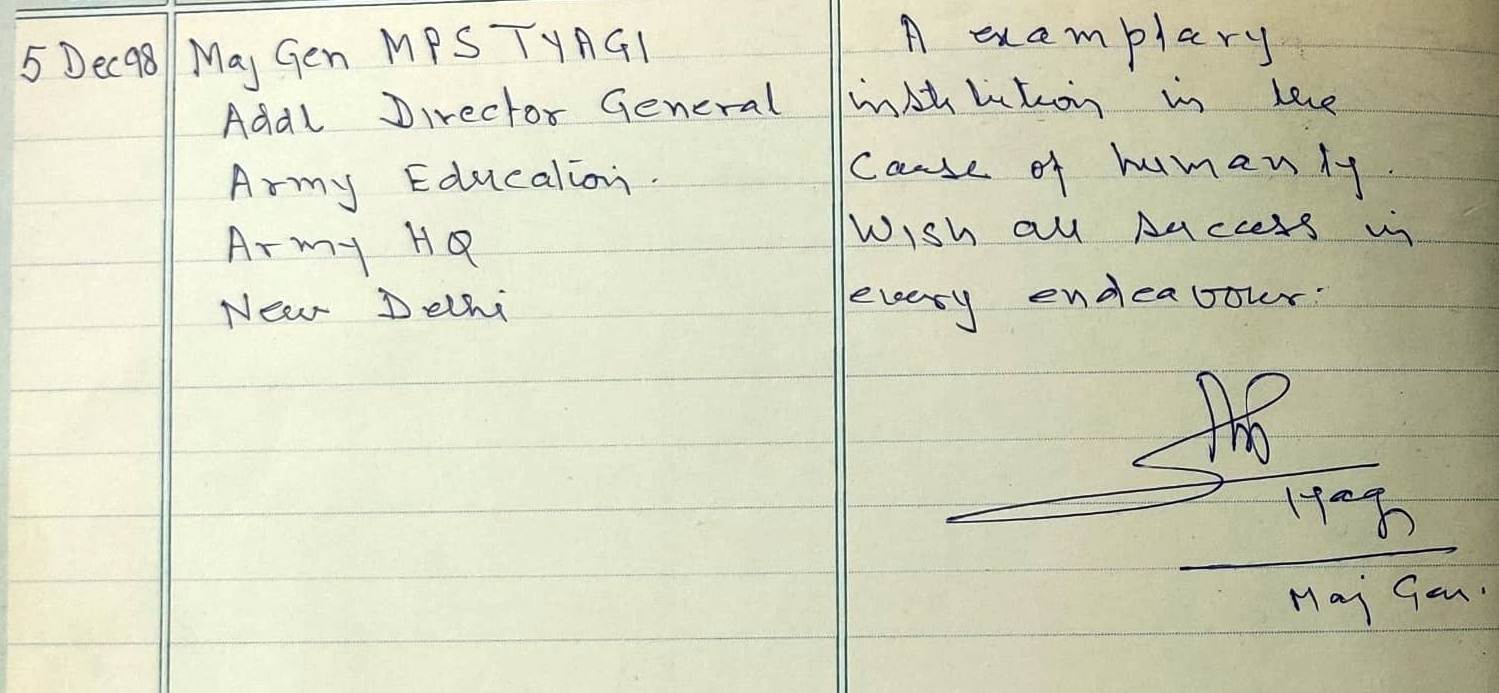 5 Dec 98
Maj Gen MPS TYAGI
Addl Director General
Army Education.
Army HQ
New Delhi
A examplary
institution in the
cause of humanity.
Wish all success in
every endeavour.
Tyagi
Maj Gen.